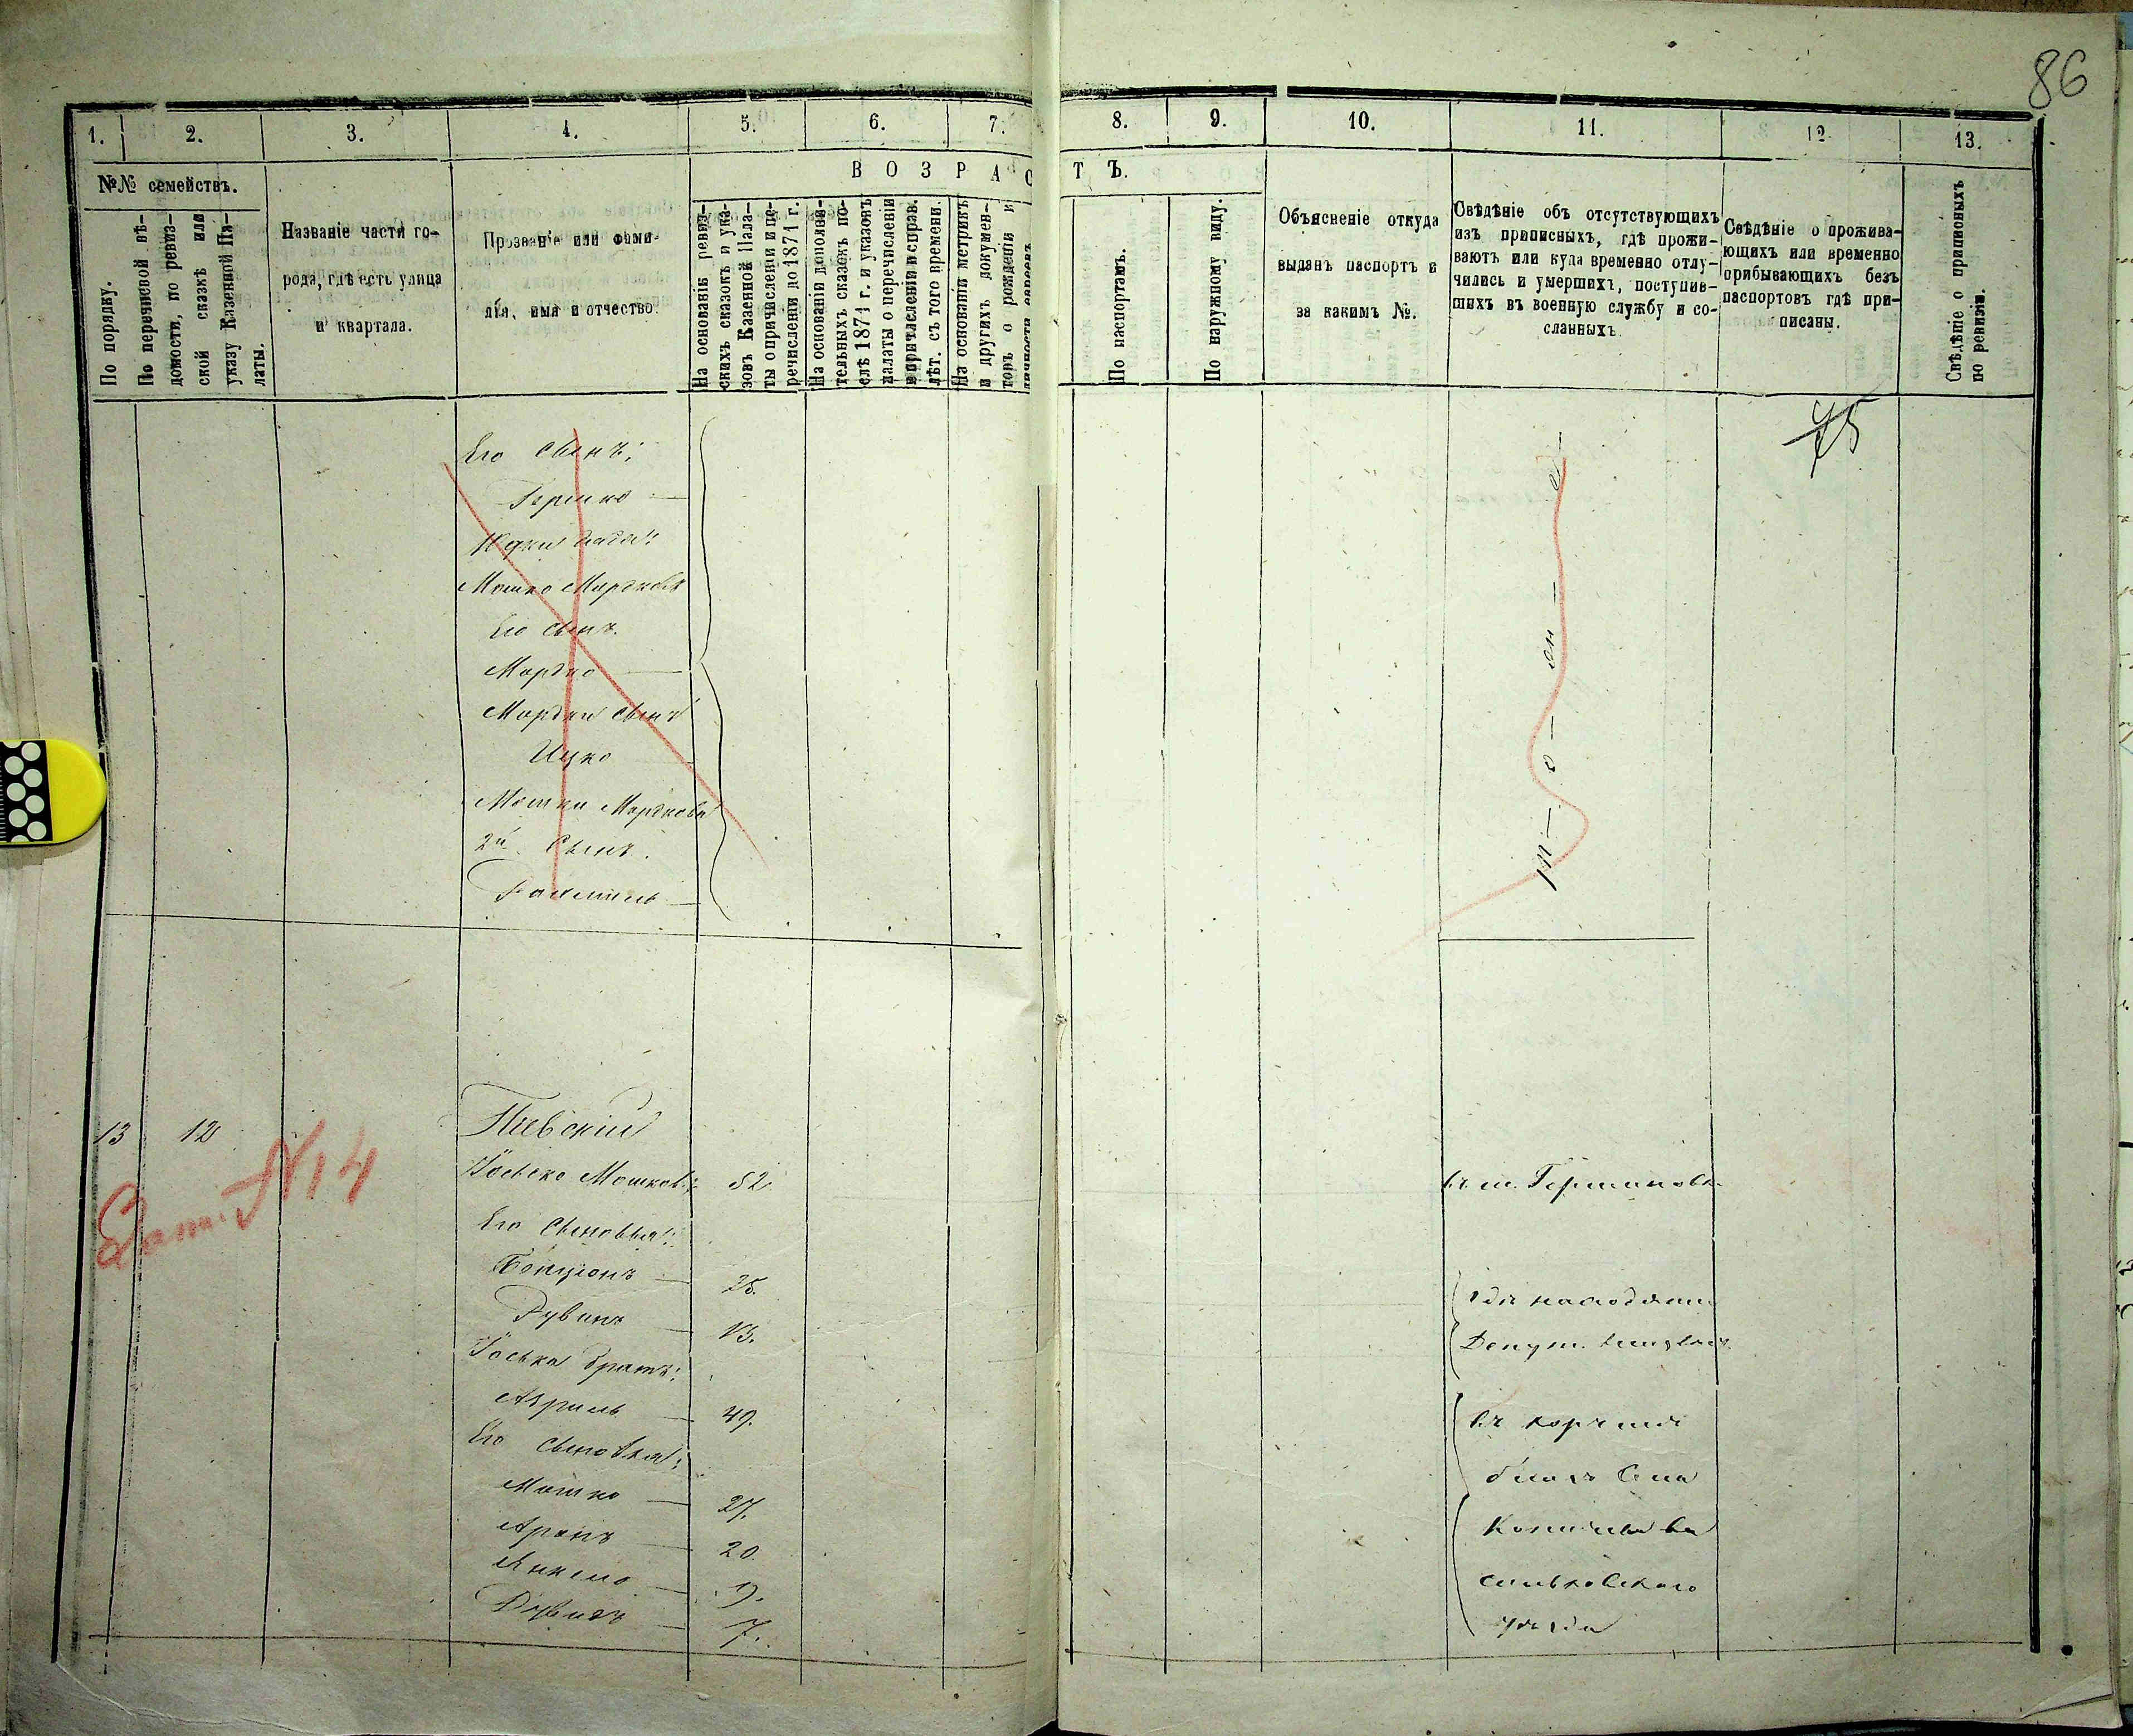 86
1. 2. 3. 4. 5. 6. 7. 8. 9. 10. 11. 12 13.
№№ семействъ.
По порядку.
По переписной вѣ-
домости, по ревиз-
ской сказкѣ или
указу Казенной Па-
латы.
Названіе части го-
рода, гдѣ есть улица
и квартала.
Прозваніе или фами-
лія, имя и отчество.
ВОЗРАСТЪ.
На основаніи ревиз-
скихъ сказокъ и ука-
зовъ Казенной Пала-
ты о причисленіи и пе-
речисленіи до 1871 г.
На основаніи дополни-
тельныхъ сказокъ по-
слѣ 1871 г. и указовъ
палаты о перечисленіи
и причисленіи и справ.
лѣт. съ того времени.
На основаніи метрикъ
и другихъ докумен-
товъ о рожденіи и
личности евреевъ
По паспортамъ.
По наружному виду.
Объясненіе откуда
выданъ паспортъ и
за какимъ №.
Свѣдѣніе объ отсутствующихъ
изъ приписныхъ, гдѣ прожи-
ваютъ или куда временно отлу-
чились и умершихъ, поступив-
шихъ въ военную службу и со-
сланныхъ.
Свѣдѣніе о прожива-
ющихъ или временно
прибывающихъ безъ
паспортовъ гдѣ при-
писаны.
Свѣдѣніе о приписныхъ
по ревизіи.
Его сынъ:
Гершко
Юдки дядя:
Мошко Мардковъ
Его сынъ.
Мардко
Мардки сынъ
Ицко
Мошки Мардкова
2й сынъ.
13 12
Кіевскій
Іосько Мошковъ 52
Его сыновья:
Бенціонъ 25.
Рувинъ 13.
Іоська братъ:
Азриль 49.
Его сыновья:
Мошко 27.
Аронъ 20.
Янкель 9.
Давидъ 7.
№ 14
въ м. Германовк.
гдѣ находятся
въ корчмѣ
близъ села
уѣзда